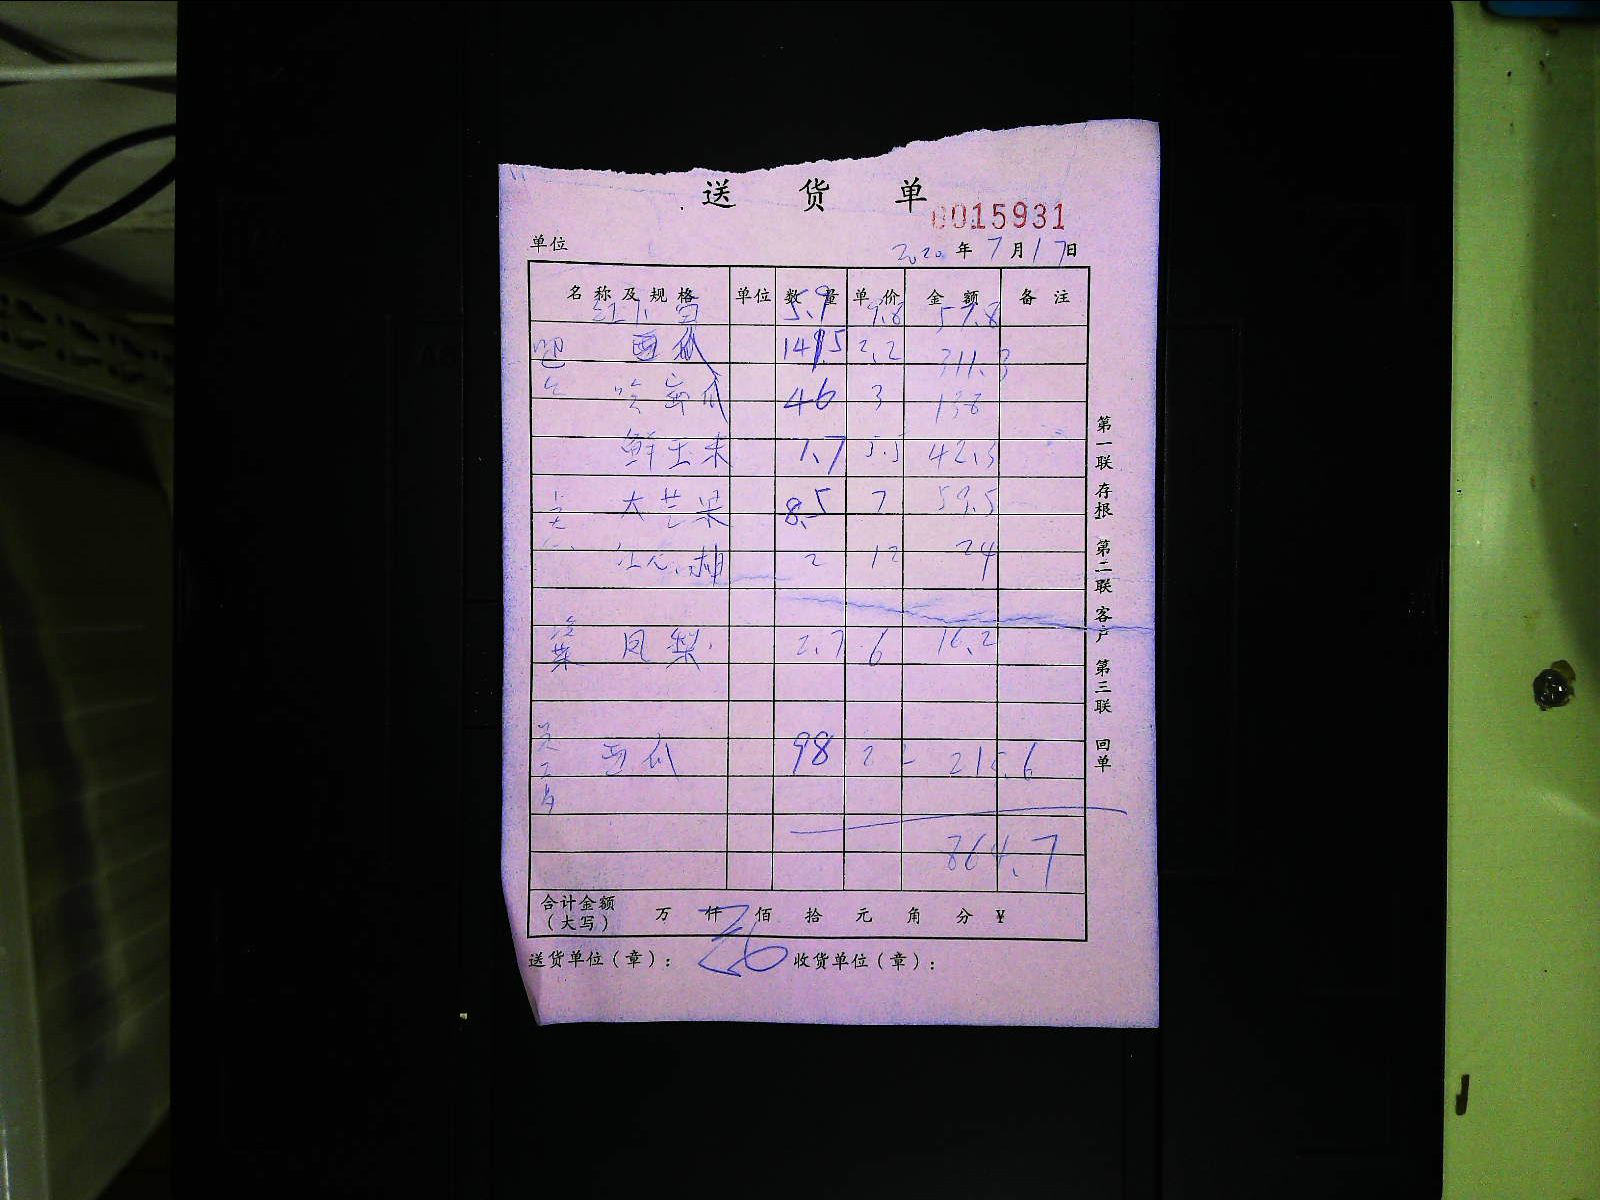 送 货 单
0015931
单位 2020 年 7 月 17 日
名称及规格 单位 数量 单价 金额 备注
5.9 9.8 57.8
吧 西瓜 141.5 2.2 311.3
哈密瓜 46 3 138
鲜玉米 7.7 5.5 42.3
大芒果 8.5 7 59.5
2 12 24
凉菜 凤梨 2.7 6 16.2
员工 西瓜 98 2.2 215.6
864.7
合计金额（大写） 万 仟 佰 拾 元 角 分 ¥
送货单位（章）： 收货单位（章）：
第一联 存根 第二联 客户 第三联 回单